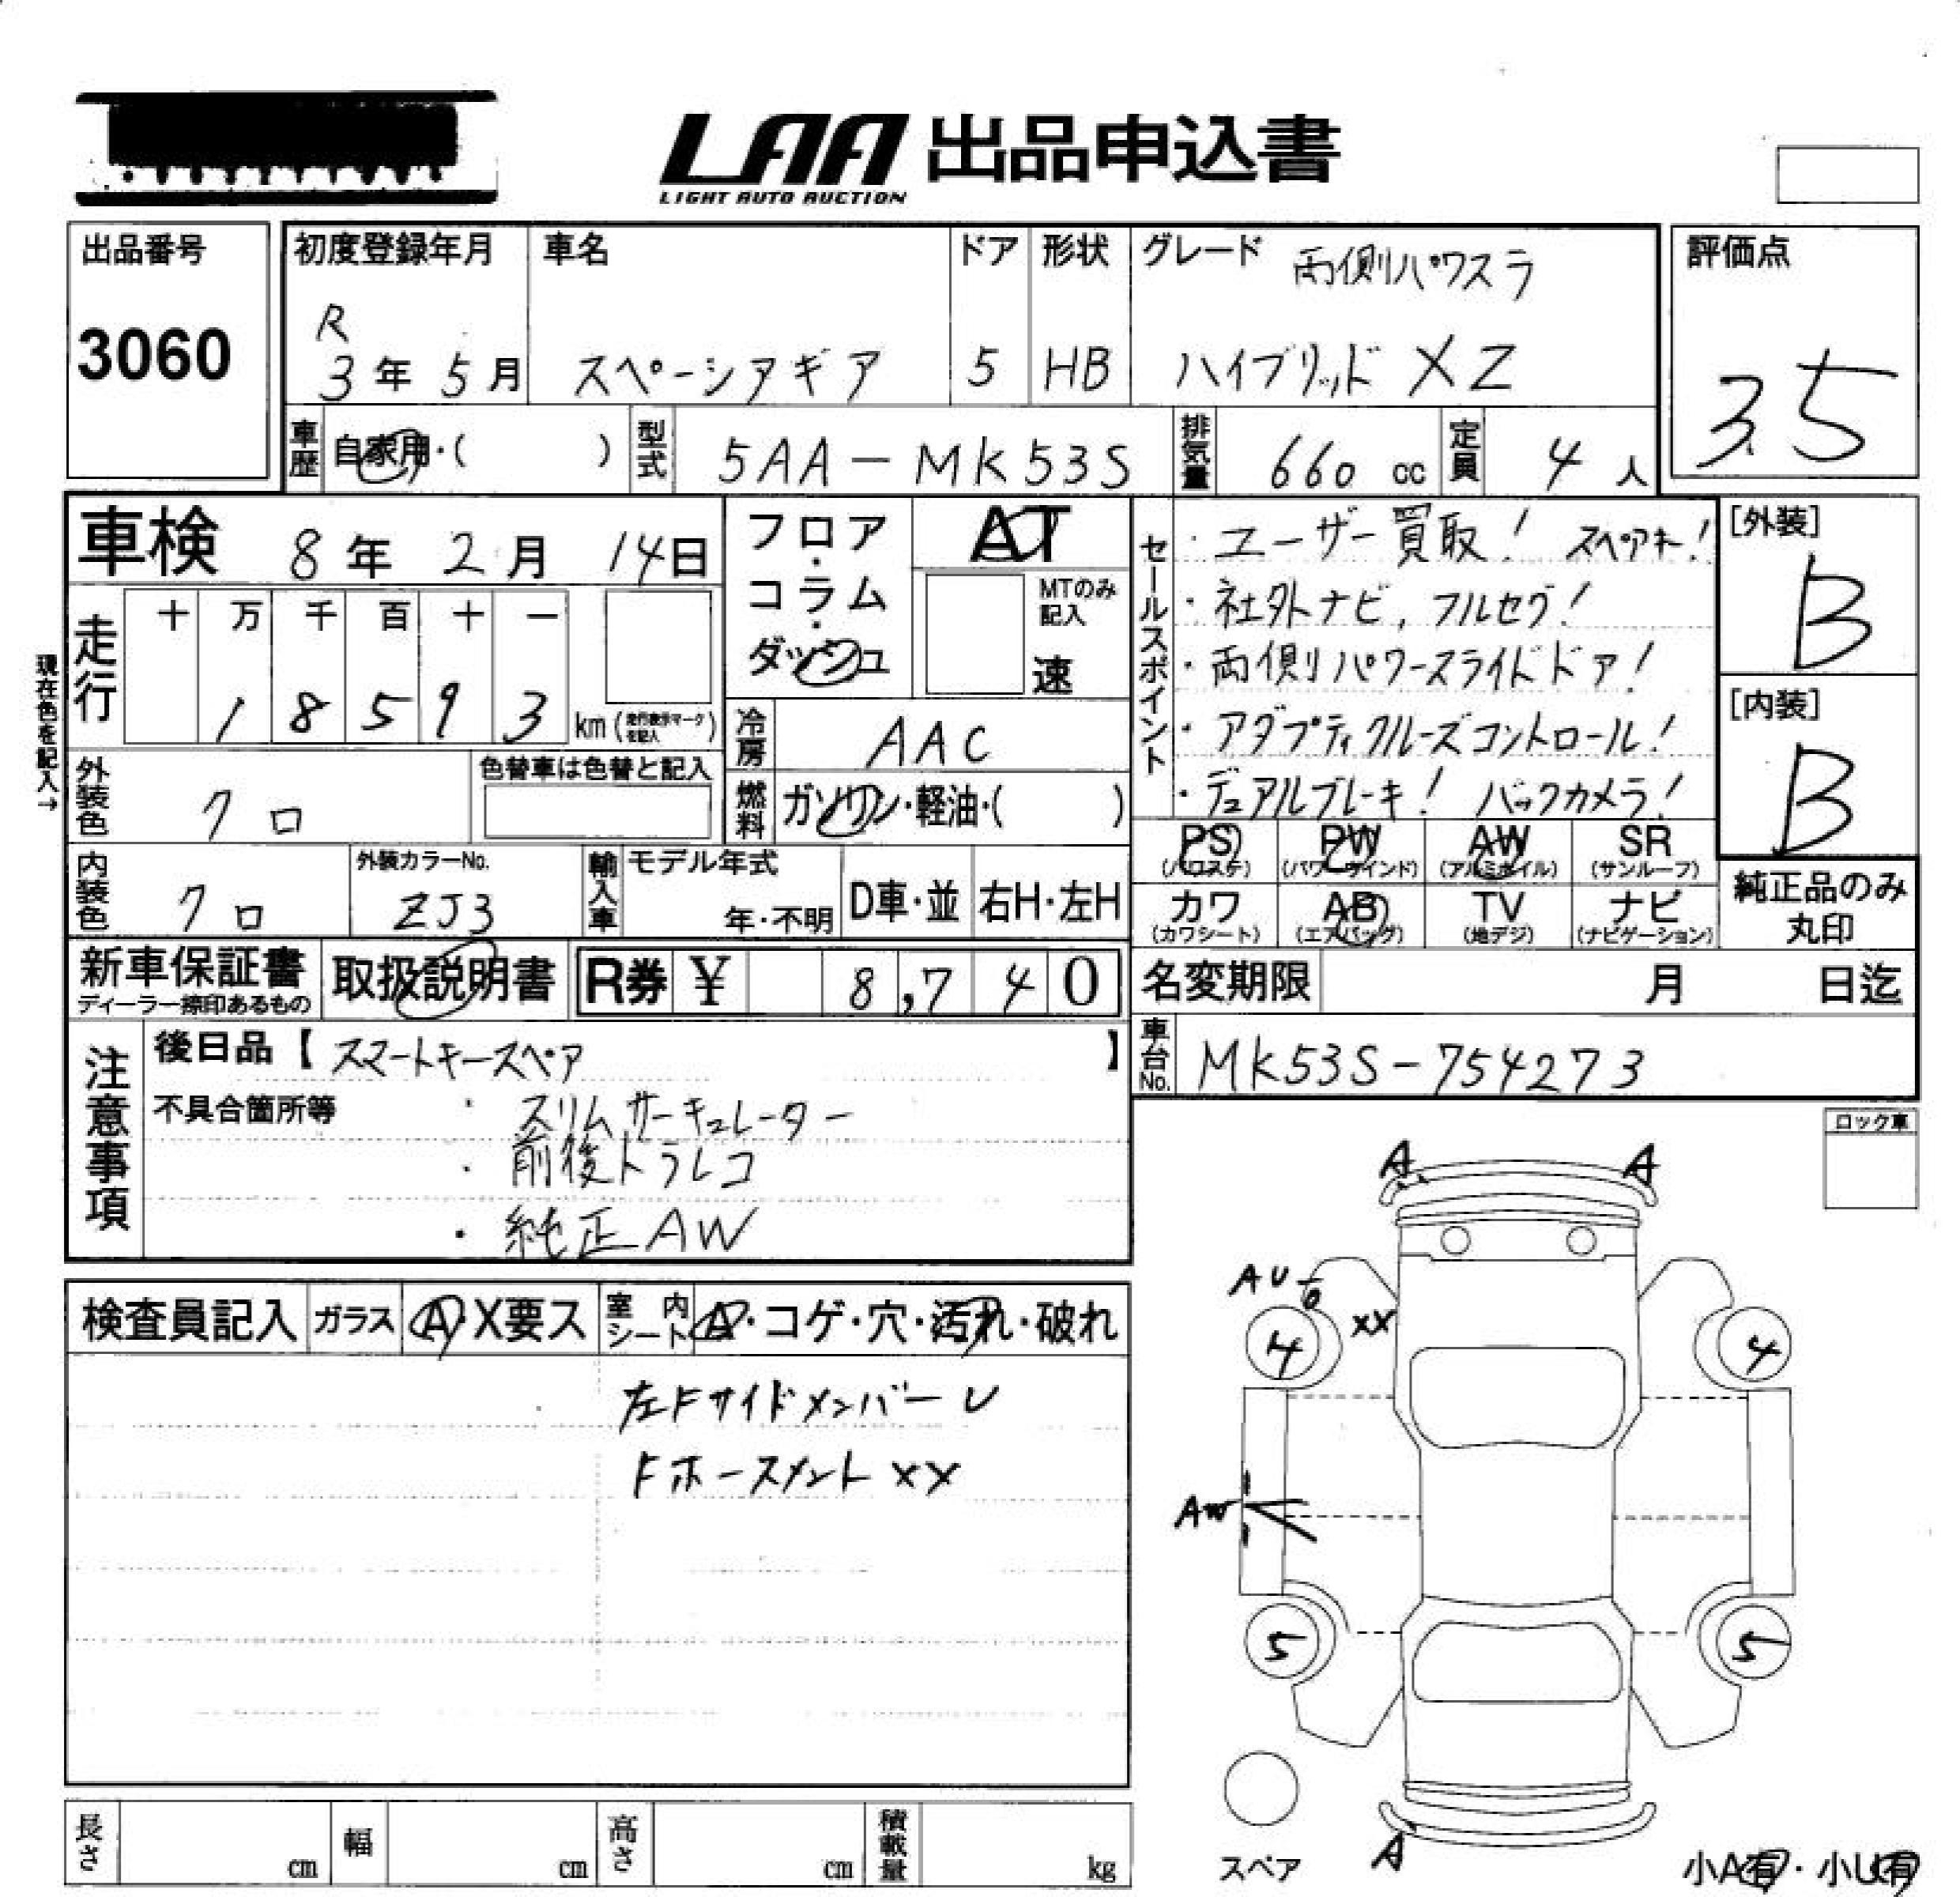 LAA 出品申込書
LIGHT AUTO AUCTION
出品番号
3060
初度登録年月
R
3年 5月
車名
スペーシアギア
ドア
5
形状
HB
グレード 両側パワスラ
ハイブリッド XZ
評価点
3.5
車歴 自家用・( )
型式 5AA-MK53S
排気量 660 cc
定員 4人
車検 8年 2月 14日
現在色を記入→
走行 十 万 千 百 十 一
1 8 5 9 3 km (走行表示マークを記入)
フロア・コラム・ダッシュ
AT
MTのみ記入
速
冷房 AAC
燃料 ガソリン・軽油・( )
セールスポイント
・ユーザー買取! スペアキー!
・社外ナビ, フルセグ!
・両側パワースライドドア!
・アダプティクルーズコントロール!
・デュアルブレーキ! バックカメラ!
[外装]
B
[内装]
B
外装色 クロ
色替車は色替と記入
内装色 クロ
外装カラーNo.
ZJ3
輸入車 モデル年式
年・不明
D車・並
右H・左H
PS (パワステ)
PW (パワーウインド)
AW (アルミホイル)
SR (サンルーフ)
カワ (カワシート)
AB (エアバッグ)
TV (地デジ)
ナビ (ナビゲーション)
純正品のみ丸印
新車保証書
ディーラー捺印あるもの
取扱説明書
R券 ¥ 8,740
名変期限 月 日迄
車台No. MK53S-754273
注意事項
後日品【スマートキースペア 】
不具合箇所等 ・スリムサーキュレーター
・前後ドラレコ
・純正AW
ロック車
検査員記入
ガラス A X要ス
室内シート A・コゲ・穴・汚れ・破れ
左Fサイドメンバー U
Fホースメント XX
A A
AU
XX
4 4
AW
5 5
A
スペア
小A有・小U有
長さ cm
幅 cm
高さ cm
積載量 kg